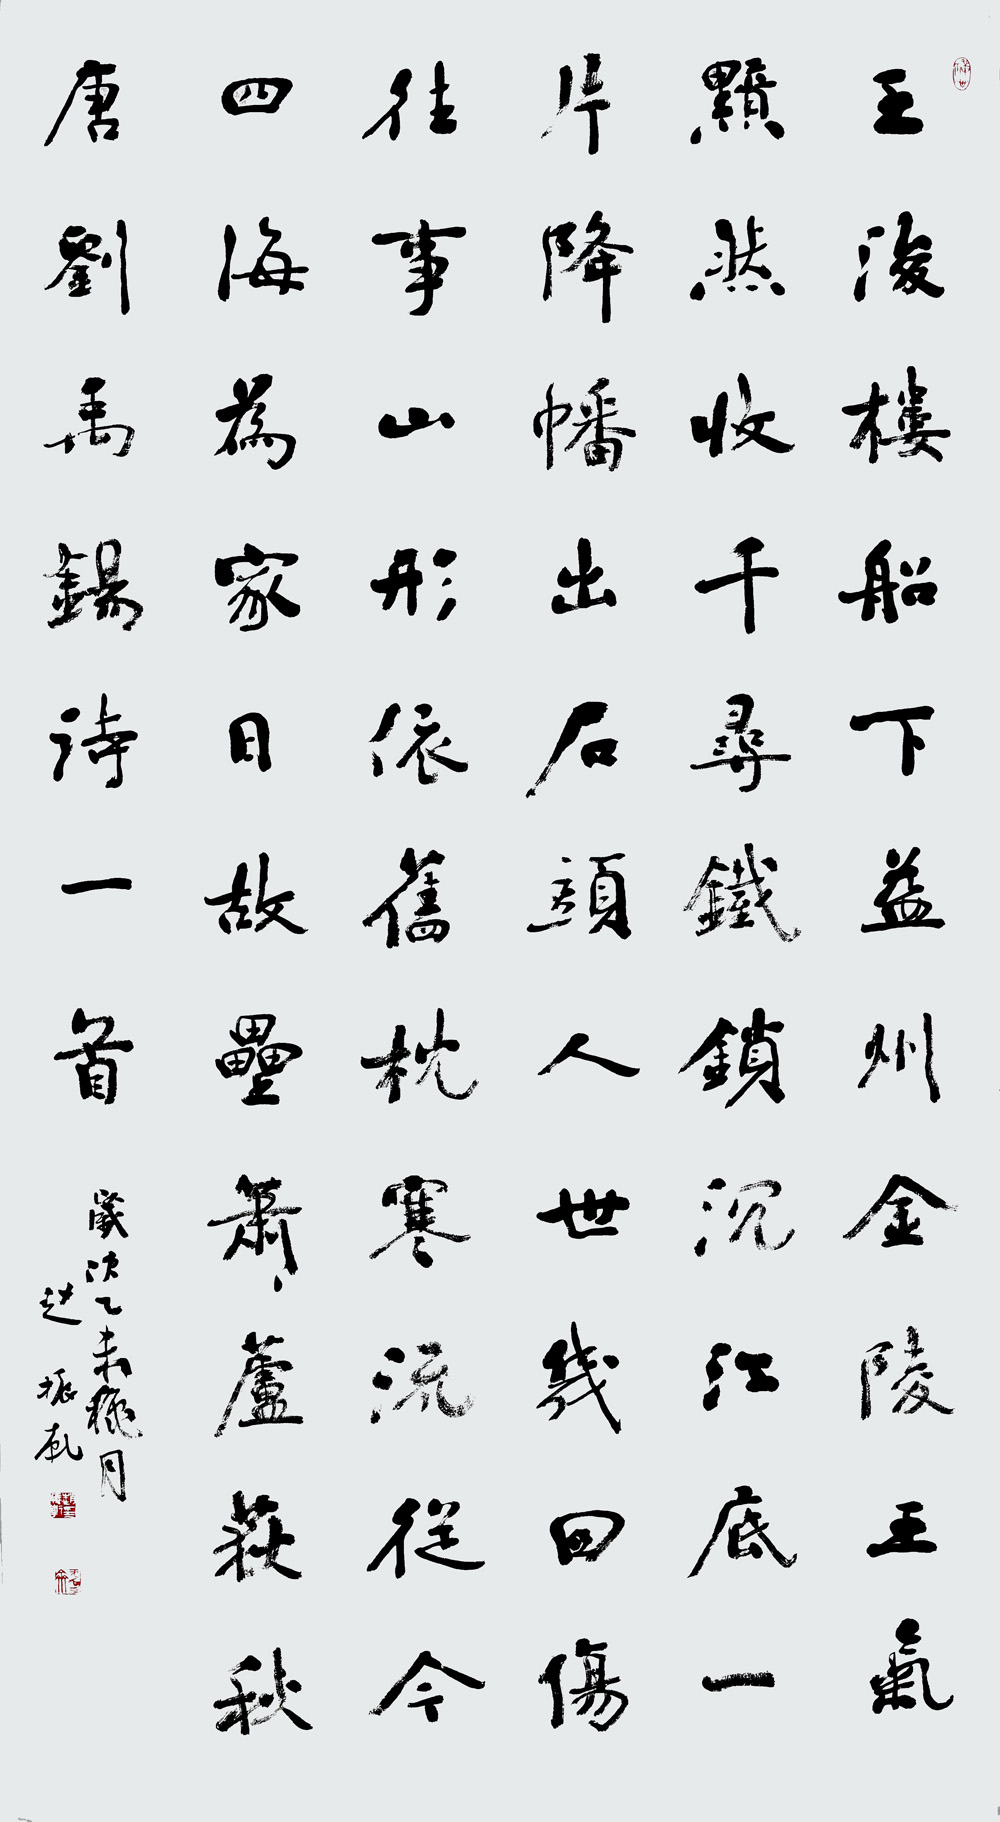 王浚樓船下益州金陵王氣
黯然收千尋鐵鎖沉江底一
片降幡出石頭人世幾回傷
往事山形依舊枕寒流從今
四海為家日故壘蕭〻蘆荻秋
唐劉禹錫詩一首
歲次乙未穐月